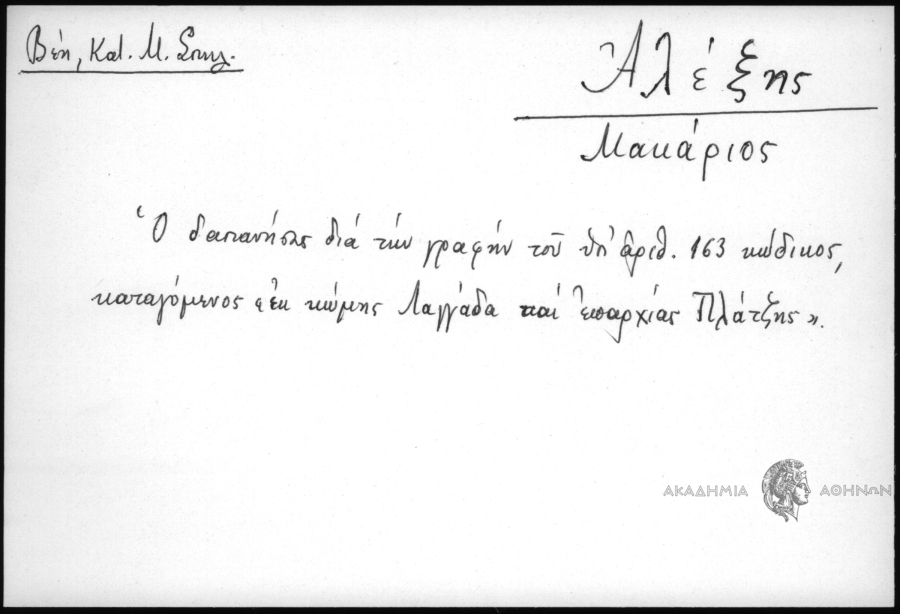 Βέη, Κατ. Μ. Σπηλ.
Ἀλέξης
Μακάριος
Ὁ δαπανήσας διά τήν γραφήν τοῦ ὑπ' ἀριθ. 163 κώδικος,
καταγόμενος «ἐκ κώμης Λαγγάδα καί ἐπαρχίας Πλάτζης».
ΑΚΑΔΗΜΙΑ ΑΘΗΝΩΝ